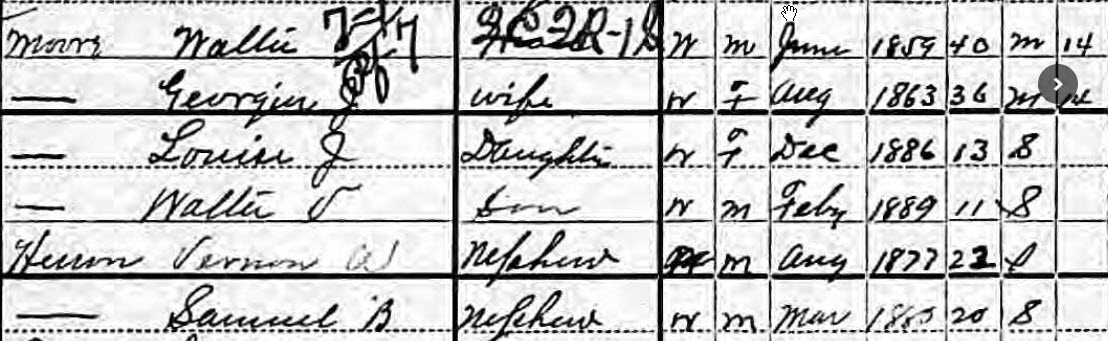 Moore Walter Head W M June 1859 40 M 14
— Georgien J wife W F Aug 1863 36 M 14
— Louise J Daughter W F Dec 1886 13 S
— Walter V Son W M Feby 1889 11 S
Vernon W Nephew W M Aug 1877 22 S
— Samuel B Nephew W M Mar 20 S